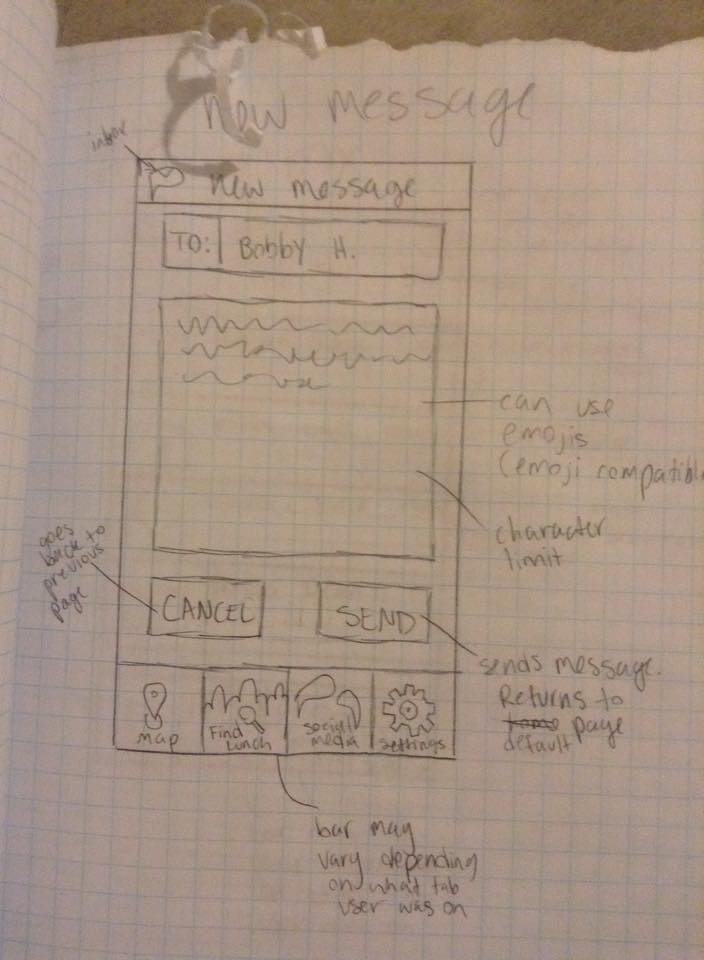 New message
inbox
new message
TO: Bobby H.
can use
emojis
(emoji compatible
character
limit
goes
back to
previous
page
CANCEL
SEND
sends message.
Returns to
page
default
map
Find
Lunch
social
media
settings
bar may
vary depending
on what tab
user was on